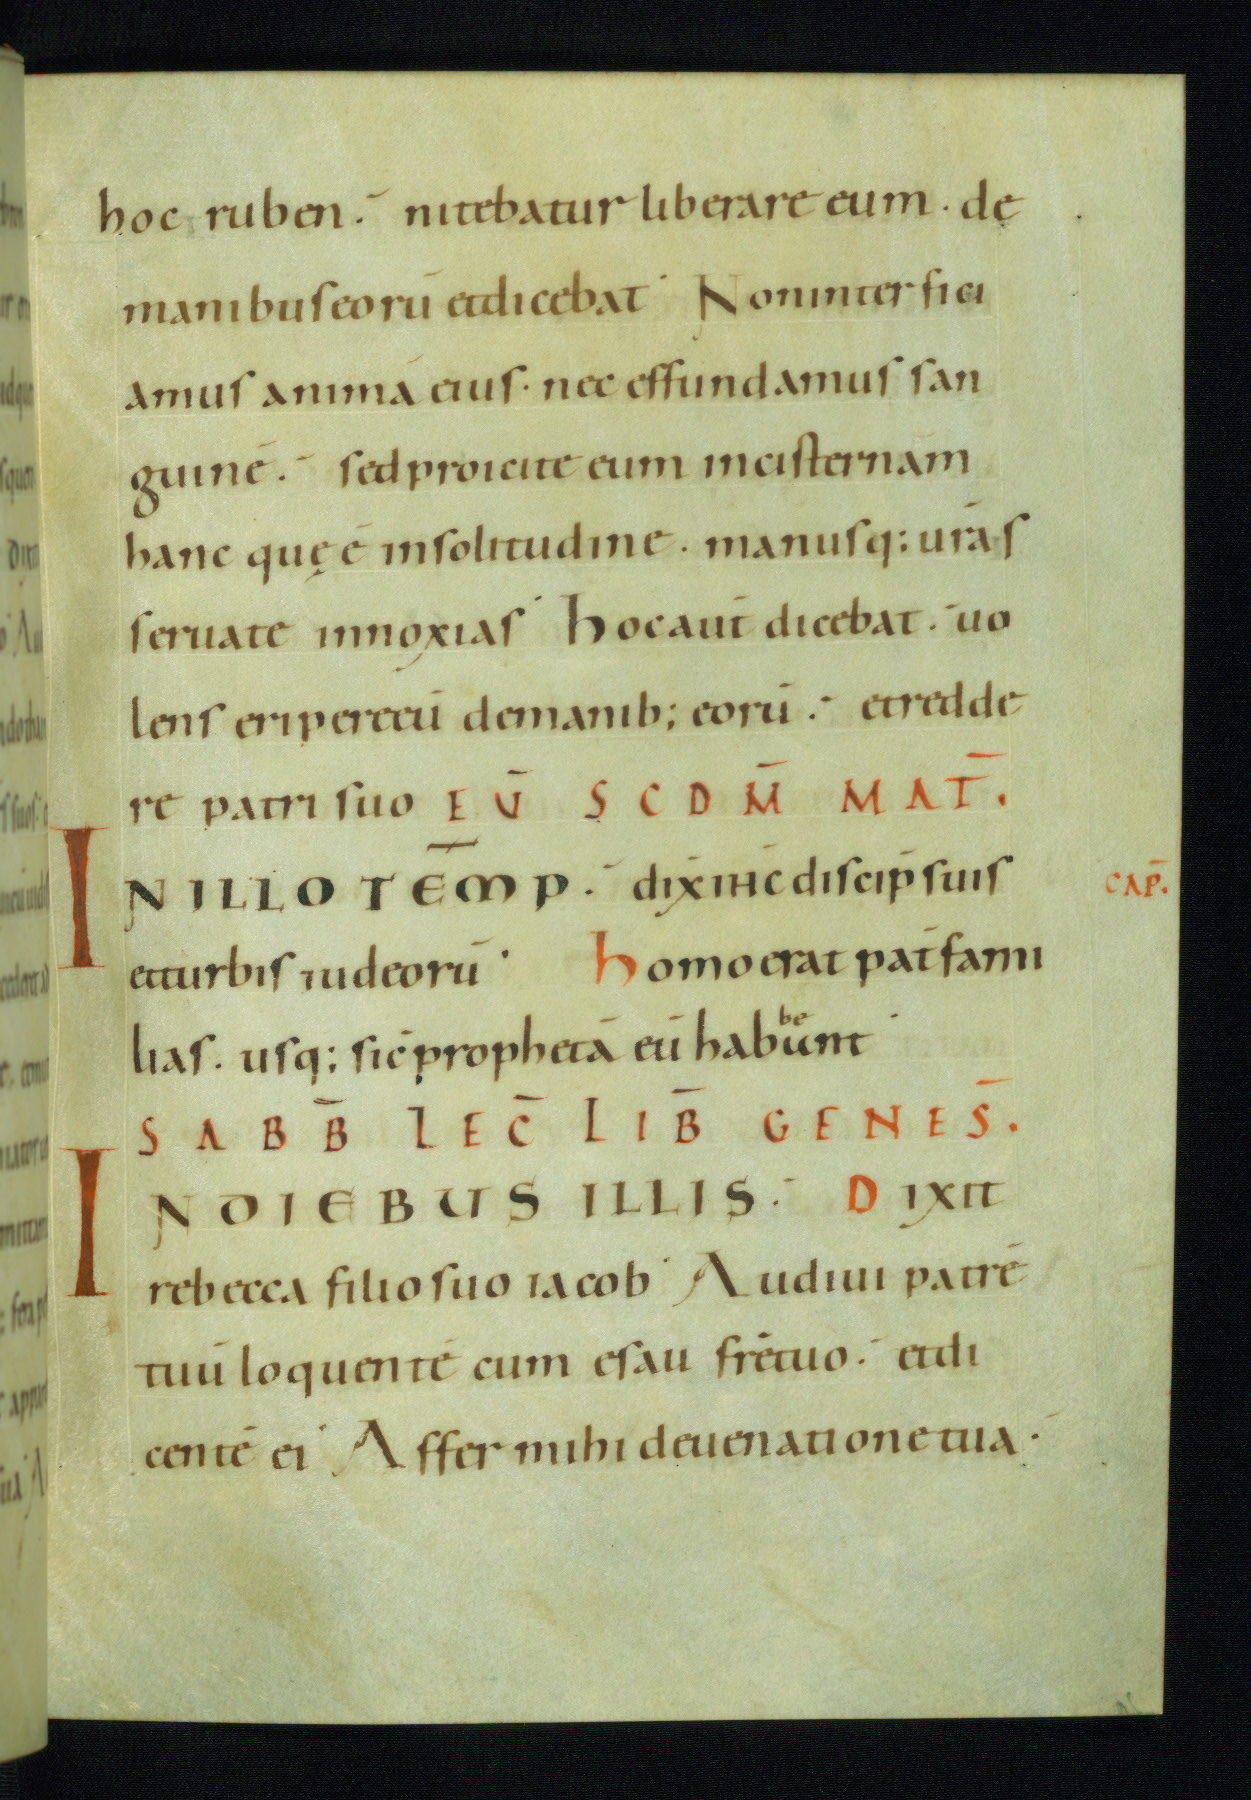 hoc ruben. nitebatur liberare eum. dę
manibus eorū et dicebat Non interfici
amus animā eius. nec effundamus san
guinē. sed proicite eum in cisternam
hanc quę ē in solitudine. manusq; urās
seruate innoxias hoc aut̄ dicebat. uo
lens eripere eū de manib; eorū. et redde
re patri suo EV̄ SCDM̄ MAT̄.
IN ILLO TĒMP. dix̄ ihc̄ discip̄ suis
CAP̄.
et turbis iudeorū homo erat pat̄ fami
lias. usq; sic̄ prophetā eū habebunt
SABB̄ LEC̄ LIB̄ GENES̄.
IN DIEBUS ILLIS. Dixit
rebecca filio suo iacob Audiui patrē
tuū loquentē cum esau frē tuo. et di
centē ei Affer mihi de uenatione tua.